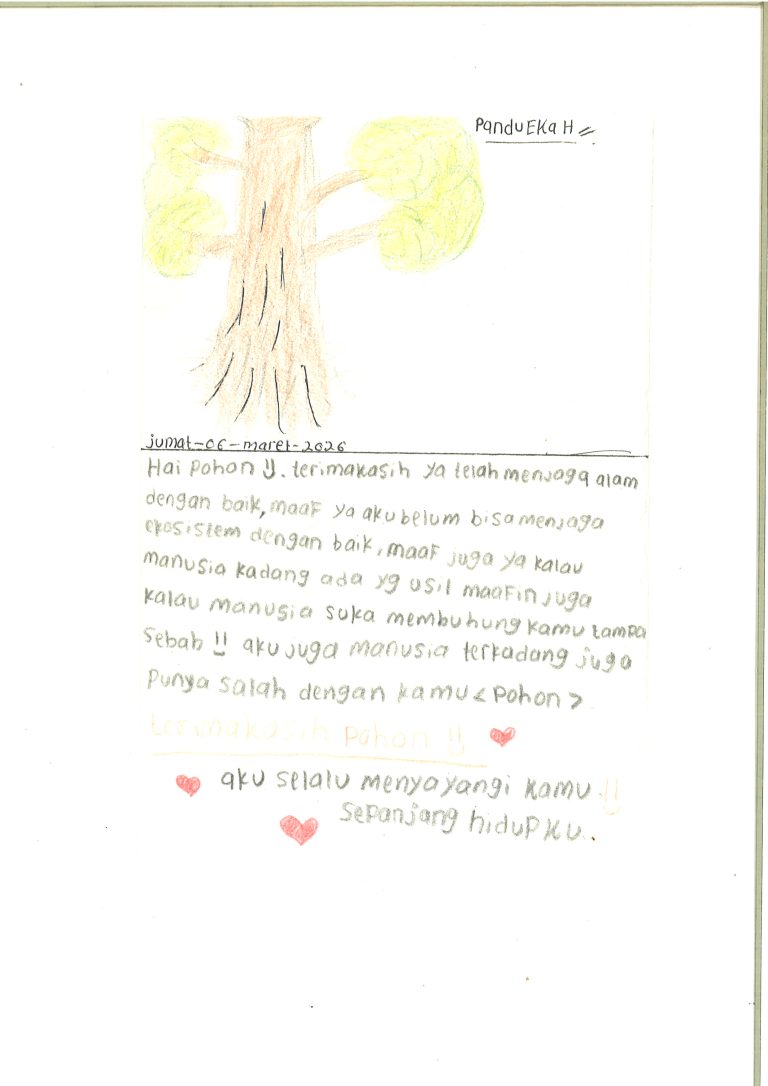 Pandu EKa H
jumat-06-maret-2026
Hai pohon !!. terimakasih ya telah menjaga alam
dengan baik, maaf ya aku belum bisa menjaga
ekosistem dengan baik, maaf juga ya kalau
manusia kadang ada yg usil maafin juga
kalau manusia suka membuhung kamu tampa
sebab !! aku juga manusia terkadang juga
punya salah dengan kamu < pohon >
terimakasih pohon !!
aku selalu menyayangi kamu !!
sepanjang hidupku..